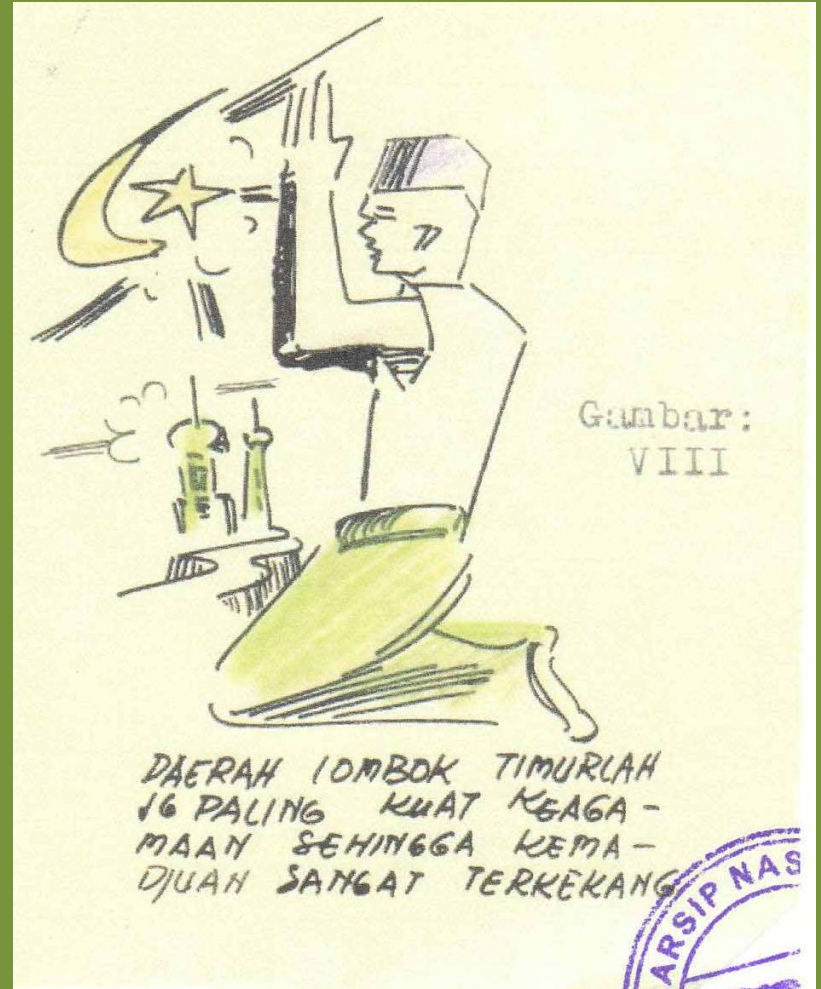 Gambar:
VIII
DAERAH LOMBOK TIMURLAH
JG PALING KUAT KEAGA-
MAAN SEHINGGA KEMA-
DJUAN SANGAT TERKEKANG
ARSIP NAS